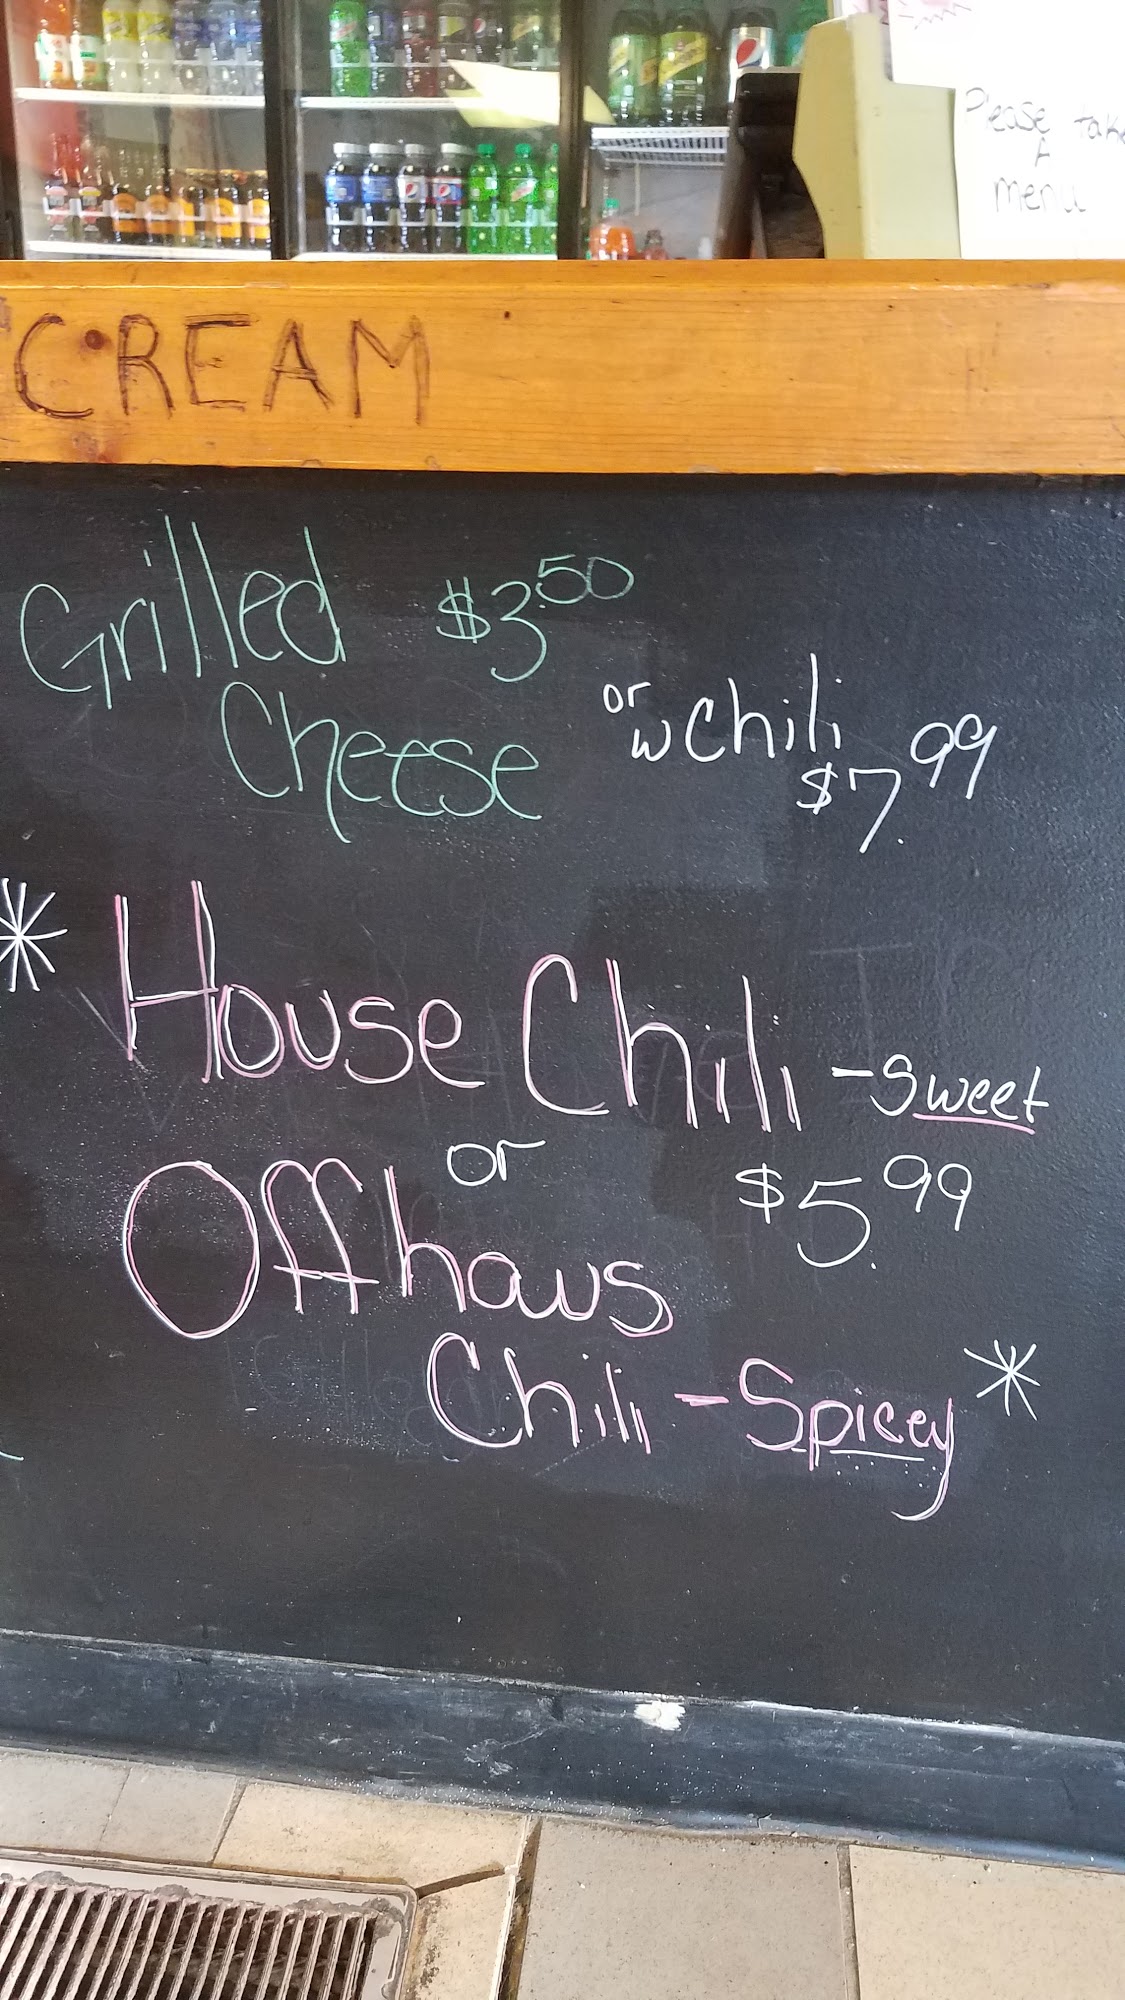 Please take
A
menu
CREAM
Grilled $3.50
Cheese or w chili
$7.99
* House Chili - Sweet
or $5.99
Offhaus
Chili - Spicey *